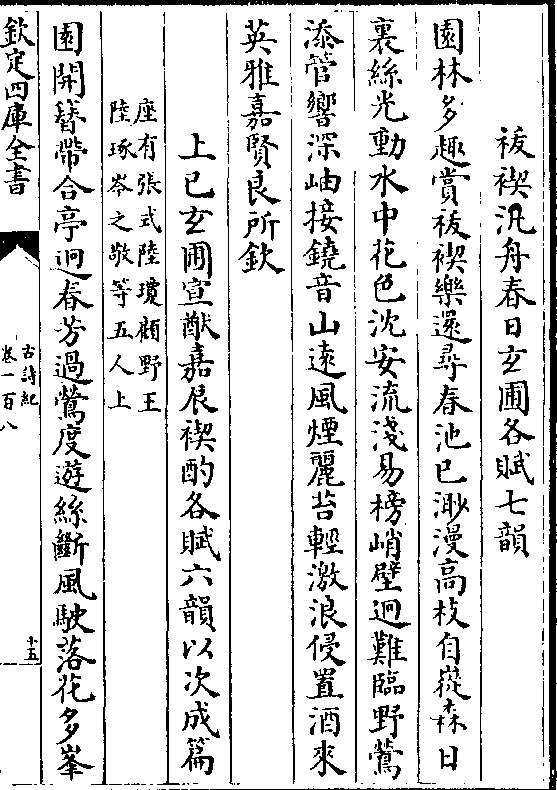 祓禊汎舟春日玄圃各賦七韻
園林多趣賞祓禊樂還尋春池已渺漫髙枝自嵸森日
裏絲光動水中花色沈安流淺易榜峭壁迥難臨野鶯
添管響深岫接鐃音山逺風煙麗苔輕激浪侵置酒來
英雅嘉賢良所欽
上巳玄圃宣猷嘉辰禊酌各賦六韻以次成篇
座有張式陸瓊顧野王
陸琢岑之敬等五人上
園開簪帶合亭迥春芳過鶯度遊絲斷風駛落花多峯
欽定四庫全書
古詩紀
卷一百八
十五